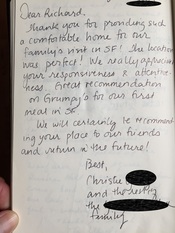 Dear Richard,
Thank you for providing such
a comfortable home for our
family's visit in SF! The location
was perfect! We really appreciated
your responsiveness & attentive-
ness. Great recommendation
on Grumpy's for our first
meal in SF.
We will certainly be recommend-
ing your place to our friends
and return in the future!
Best,
Christie
and the rest of
the
family